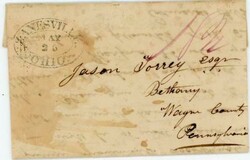 ZANESVILLE
MAY
25
OHIO
Jason Torrey esqr
Bethany
Wayne County
Pennsylvania